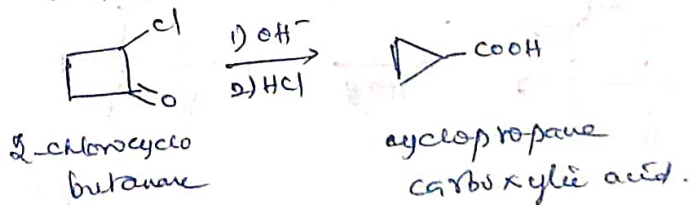 Cl
1) OH⁻
2) HCl
O
COOH
2-chlorocyclo
butanane
cyclopropane
carboxylic acid.